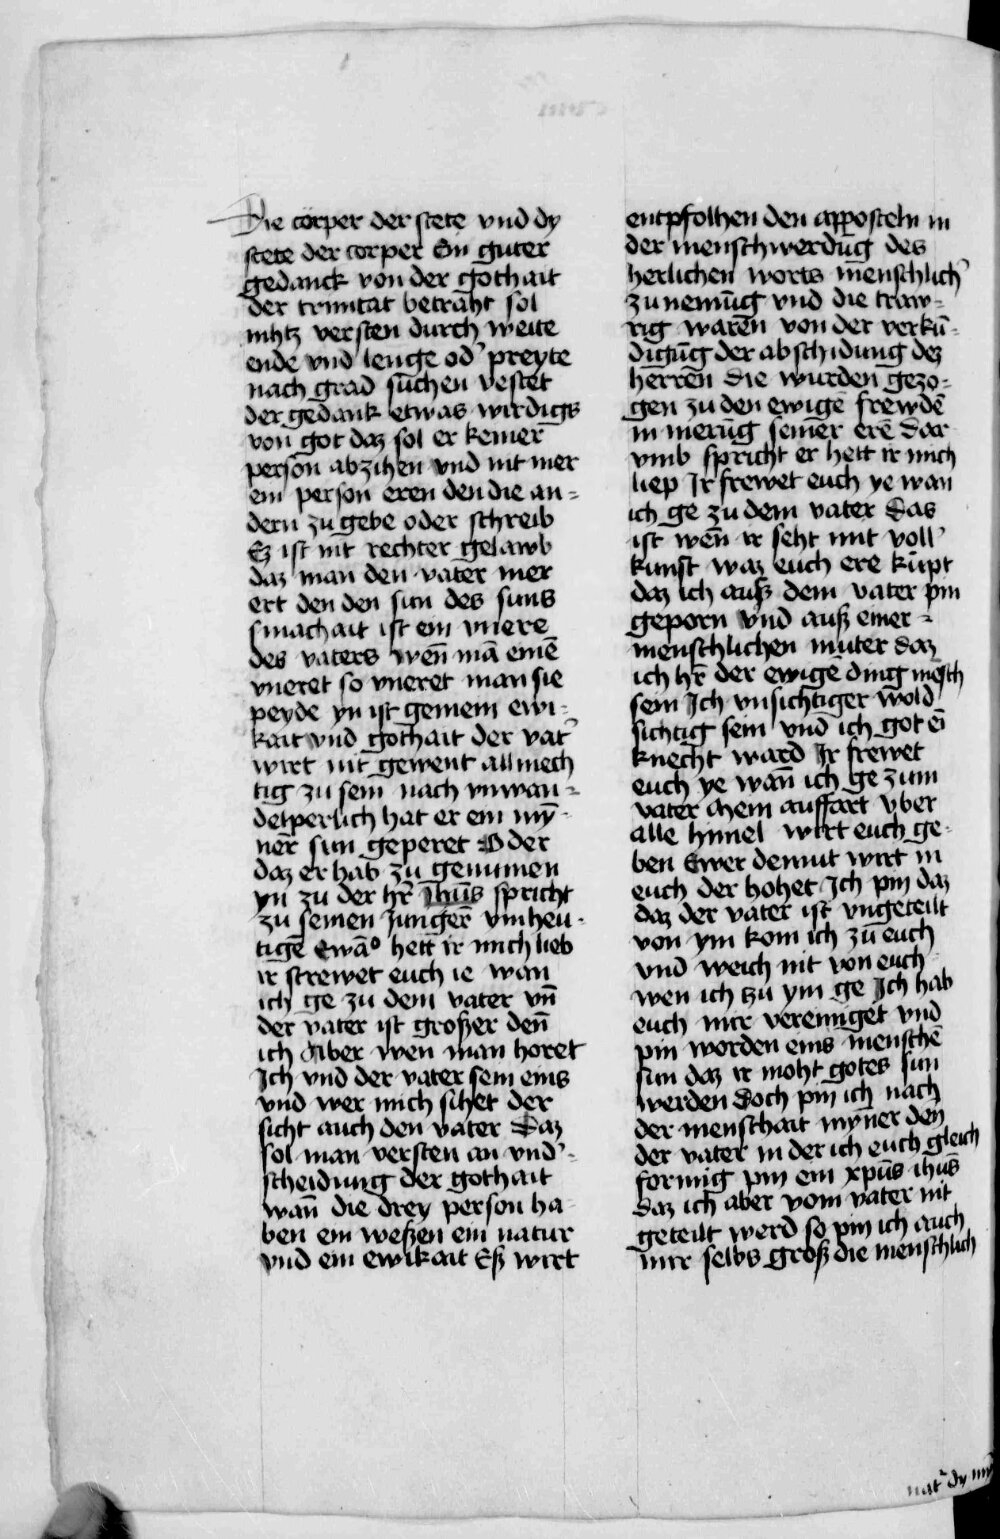 Die corper der stete vnd dy
stete der corper Ein guter
gedanck von der gothait
der trinitat betraht sol
nihtz versten durch weite
ende vnd lenge od' preyte
nach grad suchen vestet
der gedank etwas wirdigs
von got daz sol er keiner
person abzihen vnd nit mer
ein person eren den die an=
dern zu gebe oder schreib
Ez ist nit rechter gelawb
daz man den vater mer
ert den den sun des suns
smachait ist ein vnere
des vaters wen̄ mā einē
vneret so vneret man sie
peyde yn ist gemein ewi=
kait vnd gothait der vat'
wirt nit gewent allmech
tig zu sein nach vnwan=
delperlich hat er ein my̅
ner sun geperet Oder
daz er hab zu genumen
yn zu der hr̄ Jhūs spricht
zu seinen Junger̄ vm heu=
tigē Ewā° hett ir mich lieb
ir strewet euch ie wan
ich ge zu dem vater vn̄
der vater ist großer den̄
ich Aber wen man horet
Ich vnd der vater sein eins
vnd wer mich sihet der
sicht auch den vater Daz
sol man versten an vnd'=
scheidung der gothait
wan̄ die drey person ha
ben ein weßen ein natur
vnd ein ewikait Eß wirt
entpfolhen den apposteln in
der menschwerdūg des
herlichen worts menschlich'
zu nemūg vnd die traw=
rig waren von der verkū=
digūg der abschidung dez
herren Die wurden gezo=
gen zu den ewigē frewdē
in merūg seiner erē Dar
vmb spricht er hett ir mich
liep Ir frewet euch ye wan
ich ge zu dem vater Das
ist wen̄ ir seht mit voll'
kunst waz euch ere kūpt
daz ich auß dem vater pin
geporn vnd auß einer=
menschlichen muter daz
ich hr̄ der ewigē ding mēsch
sein Ich vnsichtiger wold
sichtig sein vnd ich got eī
knecht ward Ir frewet
euch ye wan̄ ich ge zum
vater Mein auffart vber
alle himel wirt euch ge=
ben Ewer demut wirt in
euch der hohet Ich pin daz
daz der vater ist vngeteilt
von ym kom ich zū euch
vnd weich nit von euch
wen ich tzu ym ge Ich hab
euch mir vereiniget vnd
pin worden eins menschē
sun daz ir moht gotes sun
werden Doch pin ich nach
der menschait myn̄er den
der vater in der ich euch gleich
formig pin ein xpūs ihūs
daz ich aber vom vater nit
geteilt werd so pin ich auch
mir selbs groß die menschlich
nat' dy